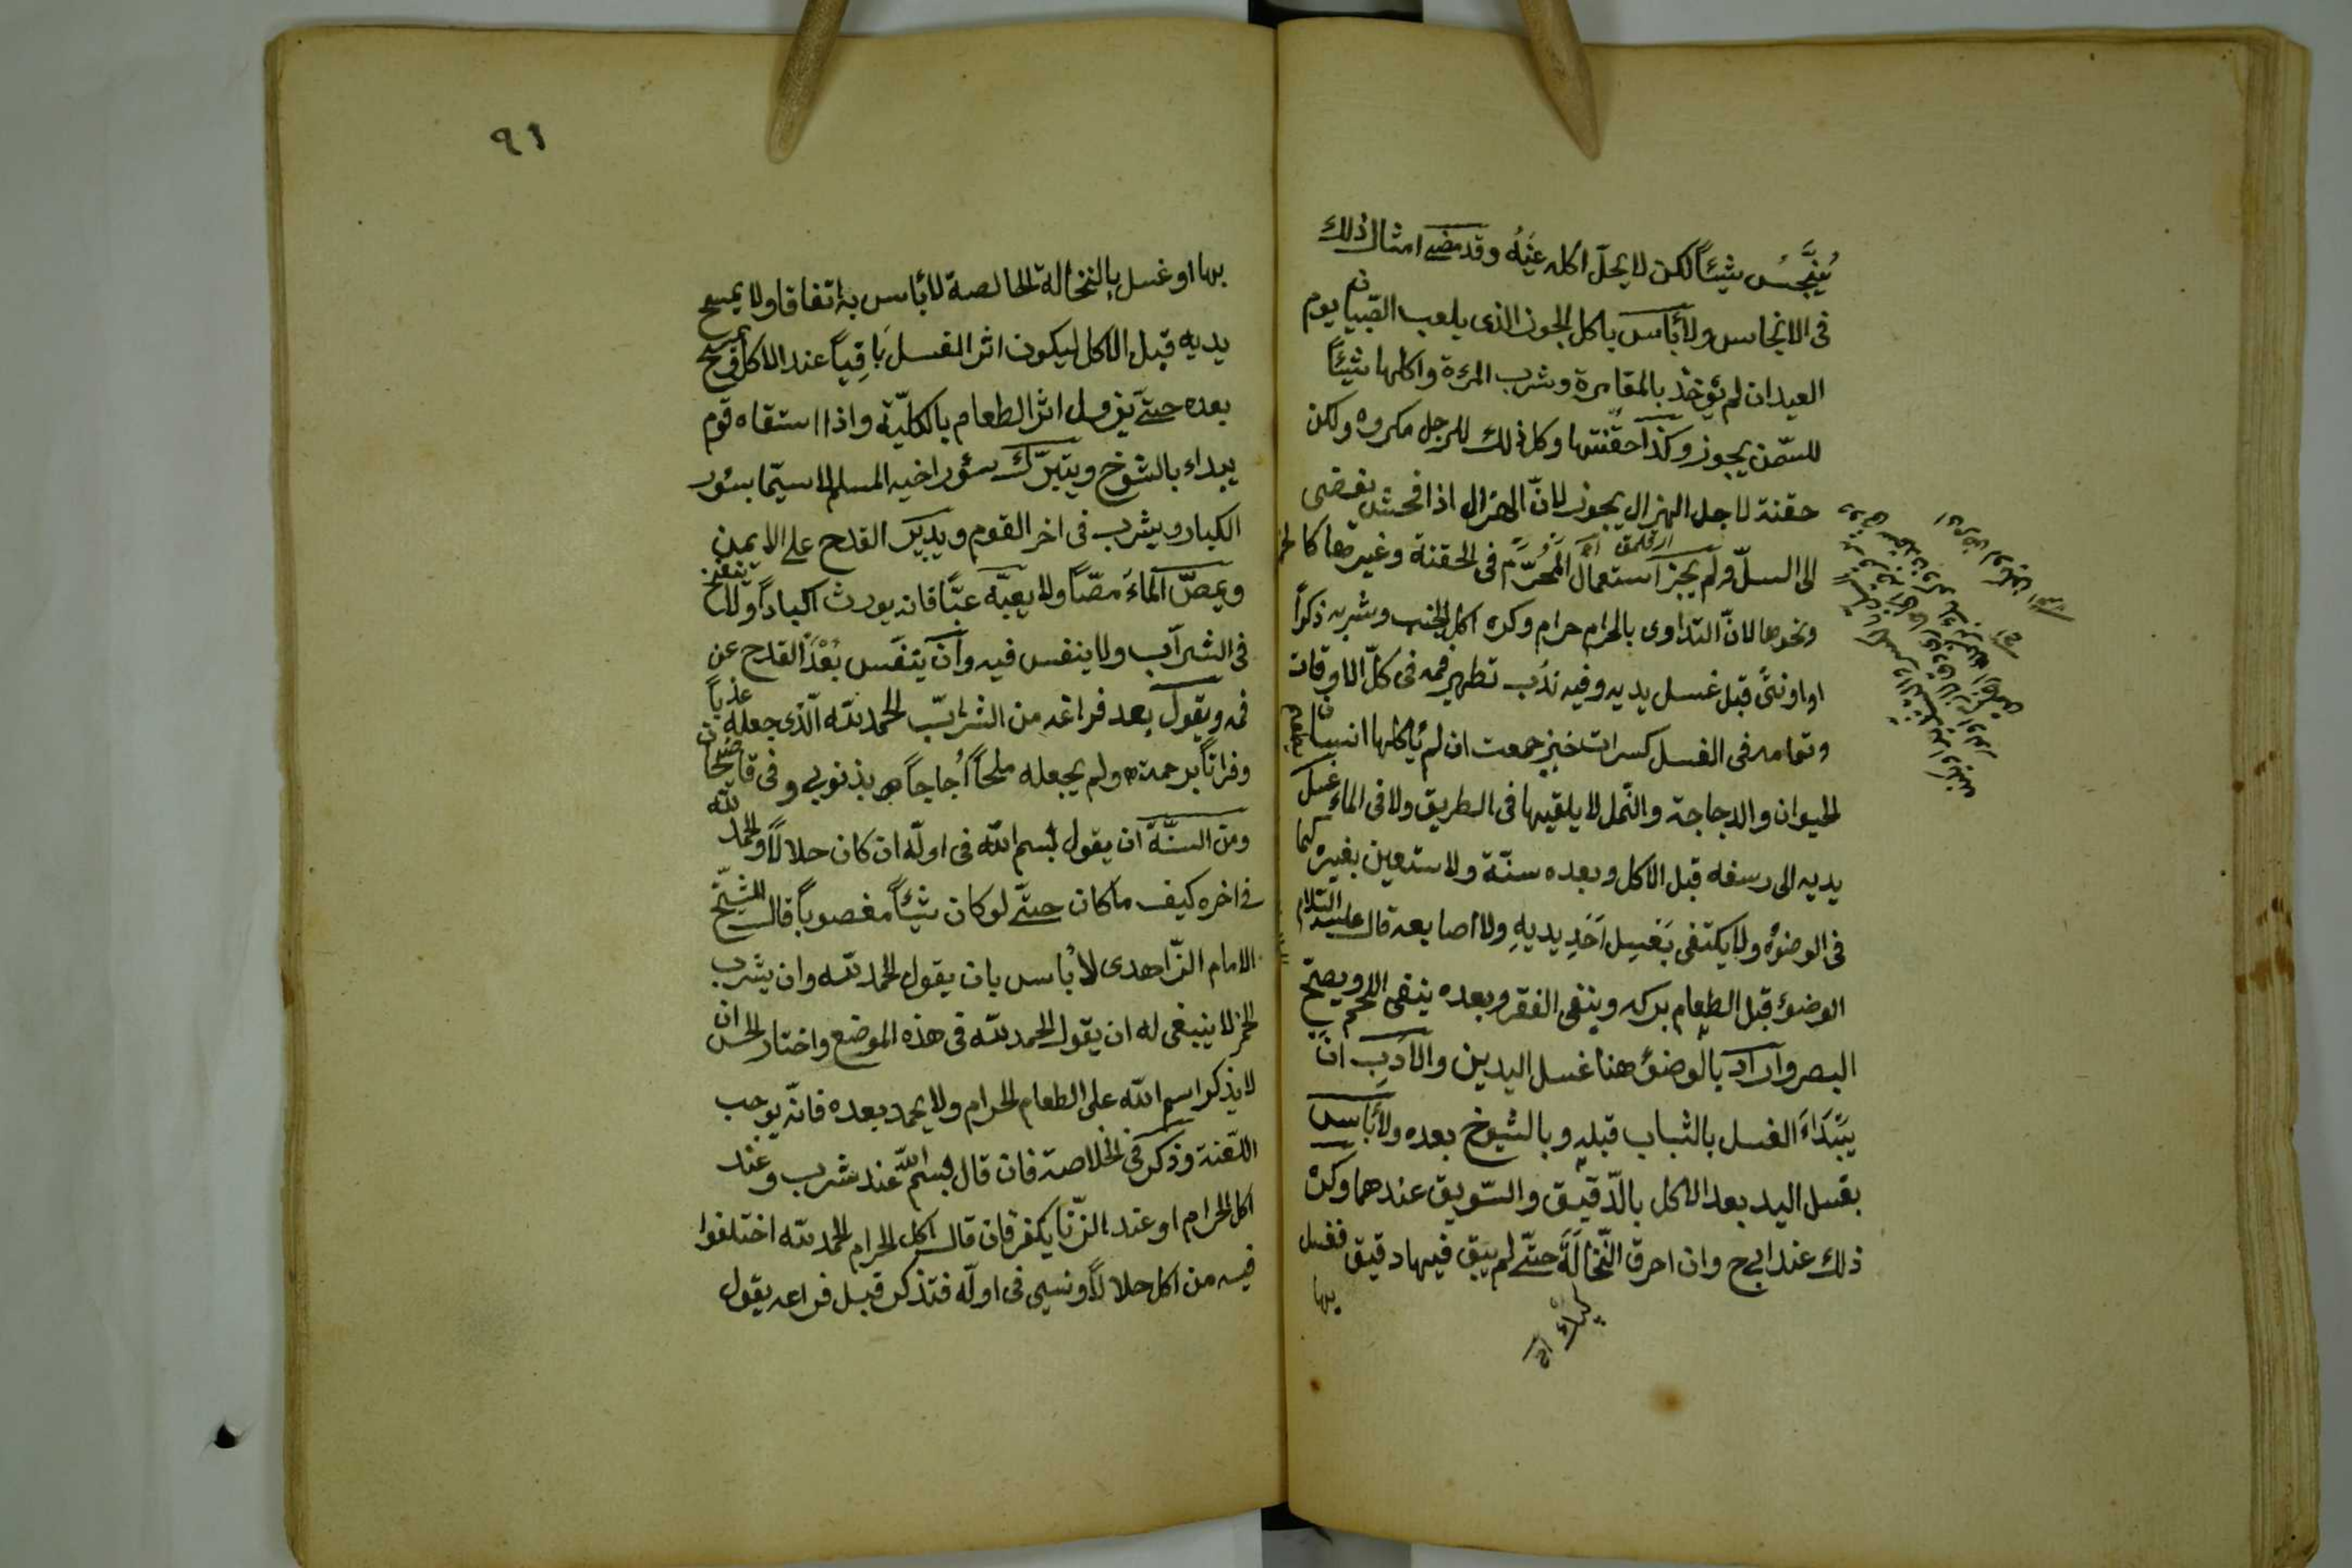 يُنَجِّسُ شيئاً لكن لا يحلّ اكله عَيْنُه وقد مضى امثال ذلك
فى الانجاس ولا بأس باكل الجوز الذى يلعب الصّبيان يوم
العيد ان لم يؤخذ بالمقامرة وشرب المرءة واكلها شيئاً
للسّمن يجوز وكذا حقنتها وكل ذلك للرجل مكروه ولكن
حقنة لاجل الهزال يجوز لانّ الهزال اذا فحش يفضى
الى السلّ ولم يجز استعمال المُحَرَّم فى الحقنة وغيرها كالخمر
ونحوها لانّ التداوى بالحرام حرام وكره اكل الجنب وشربه ذكراً
او اونثىً قبل غسل يديه وفيه ندُب تطهير فمه فى كلّ الاوقات
وتمامه فى الغسل كسرات خبز جمعت ان لم يأكلها انسان يطعم
الحيوان والدجاجة والنّمل لا يلقيها فى الطريق ولا فى الماء غسل
يديه الى رسغه قبل الاكل وبعده سنّة ولا يستعين بغيره كما
فى الوضوء ولا يكتفى بَغَسِل اَحَدِ يديهِ ولا اصابعه قال عليه السّلام
الوضوء قبل الطعام بركه وينفى الفقر وبعده ينفى اللحم ويصحّ
البصر واراد بالوضوء هنا غسل اليدين والاَدَبِ انْ
يَبْتَدَاءَ الغسل بالشباب قبله وبالشيوخ بعده ولا بأس
بغسل اليد بعد الاكل بالدّقيق والسّويق عندهما وكره
ذلك عند ابى ح وان احرق النّخالَةَ حتّى لم يبق فيها دقيق فغسل
بها
٩١
بها او غسل بالنخالة الخالصة لا بأس به اتفاقا ولا يمسح
يديه قبل الاكل ليكون اثر الغسل بَاقِياً عند الاكل ويمسح
بعده حتّى يزول اثر الطعام بالكلّيّة واذا استقاه قوم
يبداء بالشيوخ ويتبرّك سؤر اخيه المسلم لا سيّما بسؤر
الكبار ويشرب فى اخر القوم ويدير القدح على الايمن
ويمصّ الماءَ مصّاً ولا يعبّه عبّاً فانه يورث اكباداً ولا ينفخ
فى الشراب ولا ينفس فيه وان يتنفّس بُعْدَ القدح عن
فمه ويقول بعد فراغه من الشراب الحمد لله الّذى جعله عذباً
وفراتاً برحمته ولم يجعله ملحاً اُجاجاً بذنوبى وفى قاضيخان
ومن السنّة ان يقول بسم الله فى اولّه ان كان حلالاً والحمد لله
فى اخره كيف ما كان حتّى لو كان شيئاً مغصوباً قال الشيّخ
الامام الزّاهدى لا بُأس بان يقول الحمد لله وان يشرب
الخمر لا ينبغى له ان يقول الحمد لله فى هذه الموضع واختار الحسن ان
لا يذكر اسم الله على الطعام الحرام ولا يحمد بعده فانّه يوجب
اللّعنة وذكر فى الخلاصة فان قال بسم الله عند شرب وعند
اكل الحرام او عند الزّنا يكفر فان قال اكل الحرام الحمد لله اختلفوا
فيه من اكل حلالاً ونسى فى اولّه فتذكر قبل فراغه يقول